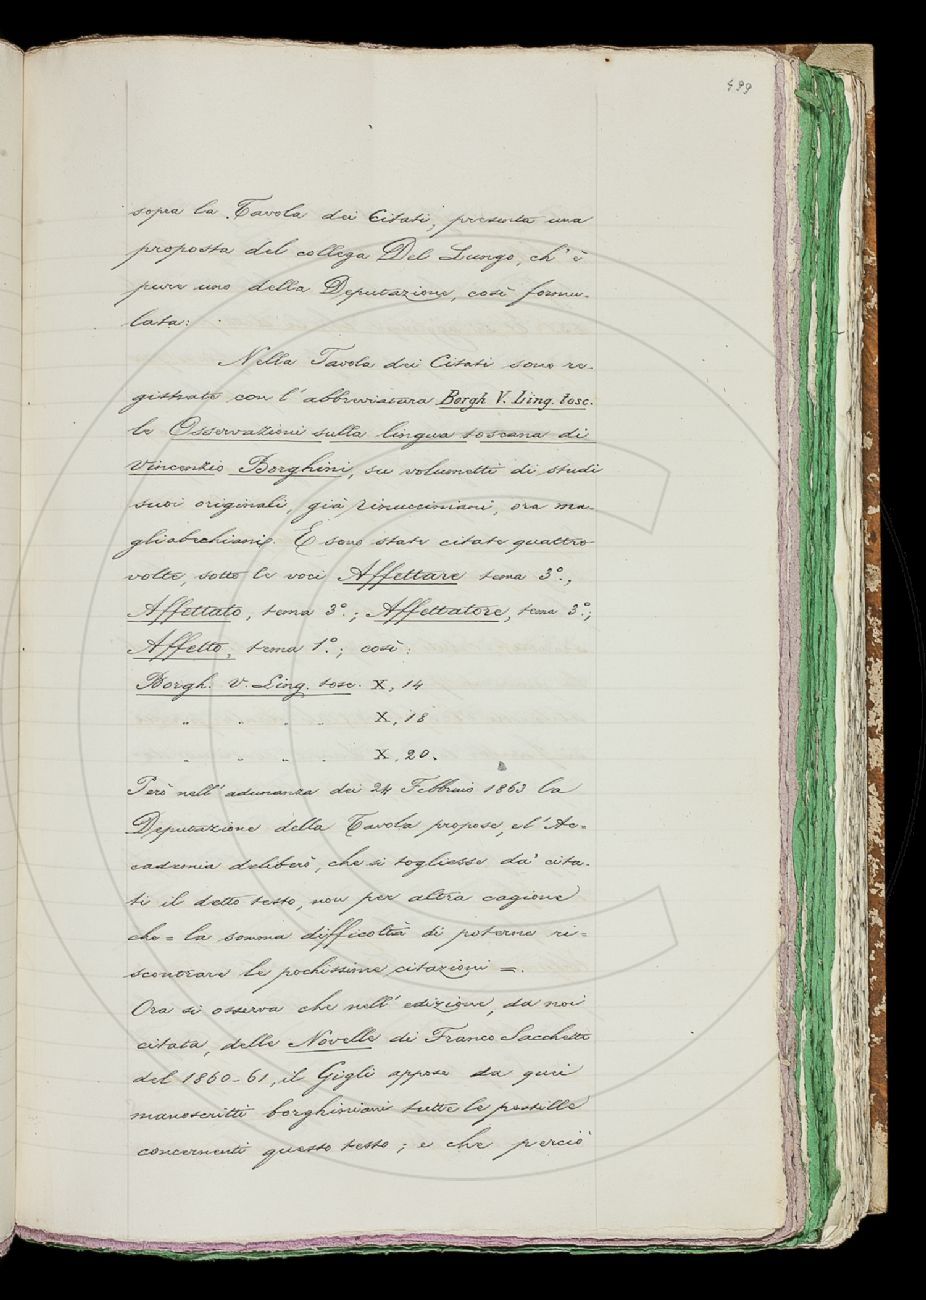 499
sopra la Tavola dei Citati, presenta una
proposta del collega Del Lungo, ch'è
pure uno della Deputazione, così formu-
lata:
Nella Tavola dei Citati sono re-
gistrate con l'abbreviatura Borgh. V. Ling. tosc.
le Osservazioni sulla lingua toscana di
Vincenzio Borghini, su volumetti di studi
suoi originali, già rinucciniani, ora ma-
gliabechiani. E sono state citate quattro
volte, sotto le voci Affettare tema 3°.,
Affettato, tema 3°.; Affettatore, tema 3°.;
Affetto, tema 1°.; così:
Borgh. V. Ling. tosc. X, 14
" " " " X, 18
" " " " X, 20.
Però nell'adunanza dei 24 Febbraio 1863 la
Deputazione della Tavola propose, e l'Ac=
cademia deliberò, che si togliesse da' cita-
ti il detto testo, non per altra cagione
che = la somma difficoltà di poterne ri=
scontrare le pochissime citazioni =.
Ora si osserva che nell'edizione, da noi
citata, delle Novelle di Franco Sacchetti
del 1860-61, il Gigli appose da quei
manoscritti borghiniani tutte le postille
concernenti questo testo; e che perciò